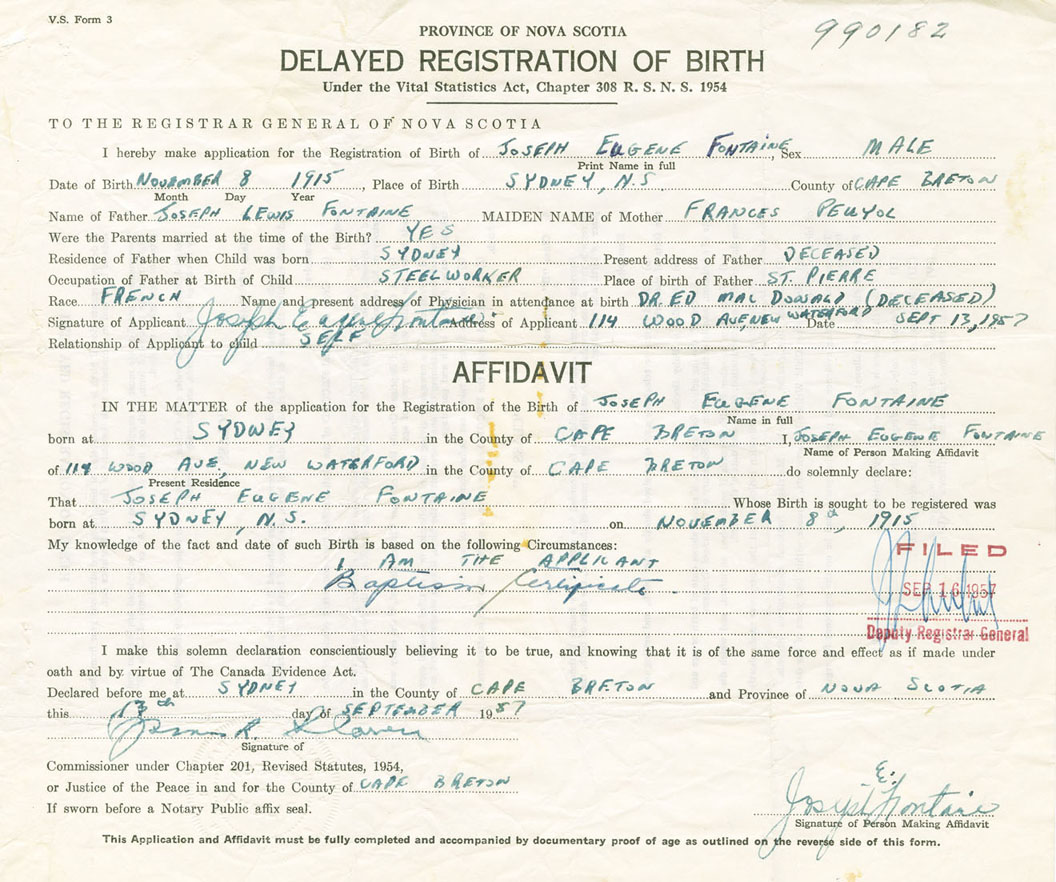 V.S. Form 3
990182
PROVINCE OF NOVA SCOTIA
DELAYED REGISTRATION OF BIRTH
Under the Vital Statistics Act, Chapter 308 R. S. N. S. 1954
TO THE REGISTRAR GENERAL OF NOVA SCOTIA
I hereby make application for the Registration of Birth of JOSEPH EUGENE FONTAINE, Sex MALE
Print Name in full
Date of Birth NOVEMBER 8 1915, Place of Birth SYDNEY, N.S. County of CAPE BRETON
Month Day Year
Name of Father JOSEPH LEWIS FONTAINE MAIDEN NAME of Mother FRANCES
Were the Parents married at the time of the Birth? YES
Residence of Father when Child was born SYDNEY Present address of Father DECEASED
Occupation of Father at Birth of Child STEELWORKER Place of birth of Father ST. PIERRE
Race FRENCH Name and present address of Physician in attendance at birth DR. ED MAC DONALD (DECEASED)
Signature of Applicant Joseph Eugene Fontaine Address of Applicant 114 WOOD AVE, NEW WATERFORD Date SEPT 13, 1957
Relationship of Applicant to child SELF
AFFIDAVIT
IN THE MATTER of the application for the Registration of the Birth of JOSEPH EUGENE FONTAINE
Name in full
born at SYDNEY in the County of CAPE BRETON I, JOSEPH EUGENE FONTAINE
Name of Person Making Affidavit
of 114 WOOD AVE, NEW WATERFORD in the County of CAPE BRETON do solemnly declare:
Present Residence
That JOSEPH EUGENE FONTAINE Whose Birth is sought to be registered was
born at SYDNEY, N.S. on NOVEMBER 8th, 1915
My knowledge of the fact and date of such Birth is based on the following Circumstances:
I AM THE APPLICANT
Baptism Certificate.
FILED
SEP 16 1957
Deputy Registrar General
I make this solemn declaration conscientiously believing it to be true, and knowing that it is of the same force and effect as if made under
oath and by virtue of The Canada Evidence Act.
Declared before me at SYDNEY in the County of CAPE BRETON and Province of NOVA SCOTIA
this 13th day of SEPTEMBER 1957
Signature of
Commissioner under Chapter 201, Revised Statutes, 1954,
or Justice of the Peace in and for the County of CAPE BRETON
If sworn before a Notary Public affix seal.
Joseph E. Fontaine
Signature of Person Making Affidavit
This Application and Affidavit must be fully completed and accompanied by documentary proof of age as outlined on the reverse side of this form.